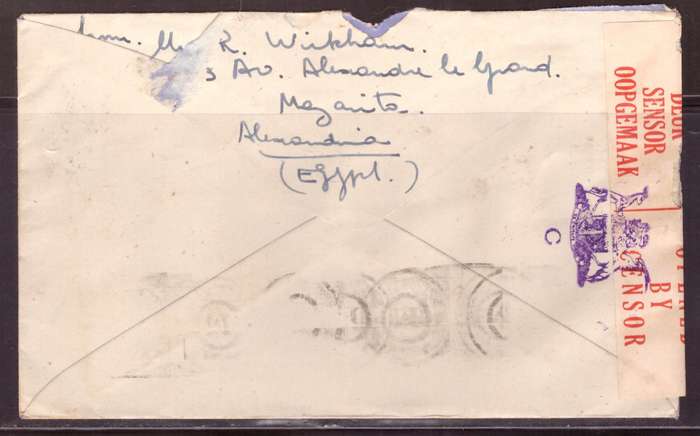 from. Mr R. Wickham.
3 Av. Alexandre le Grand.
Mazarita.
Alexandria
(Egypt.)
DEUR
SENSOR
OOPGEMAAK
OPENED
BY
CENSOR
C